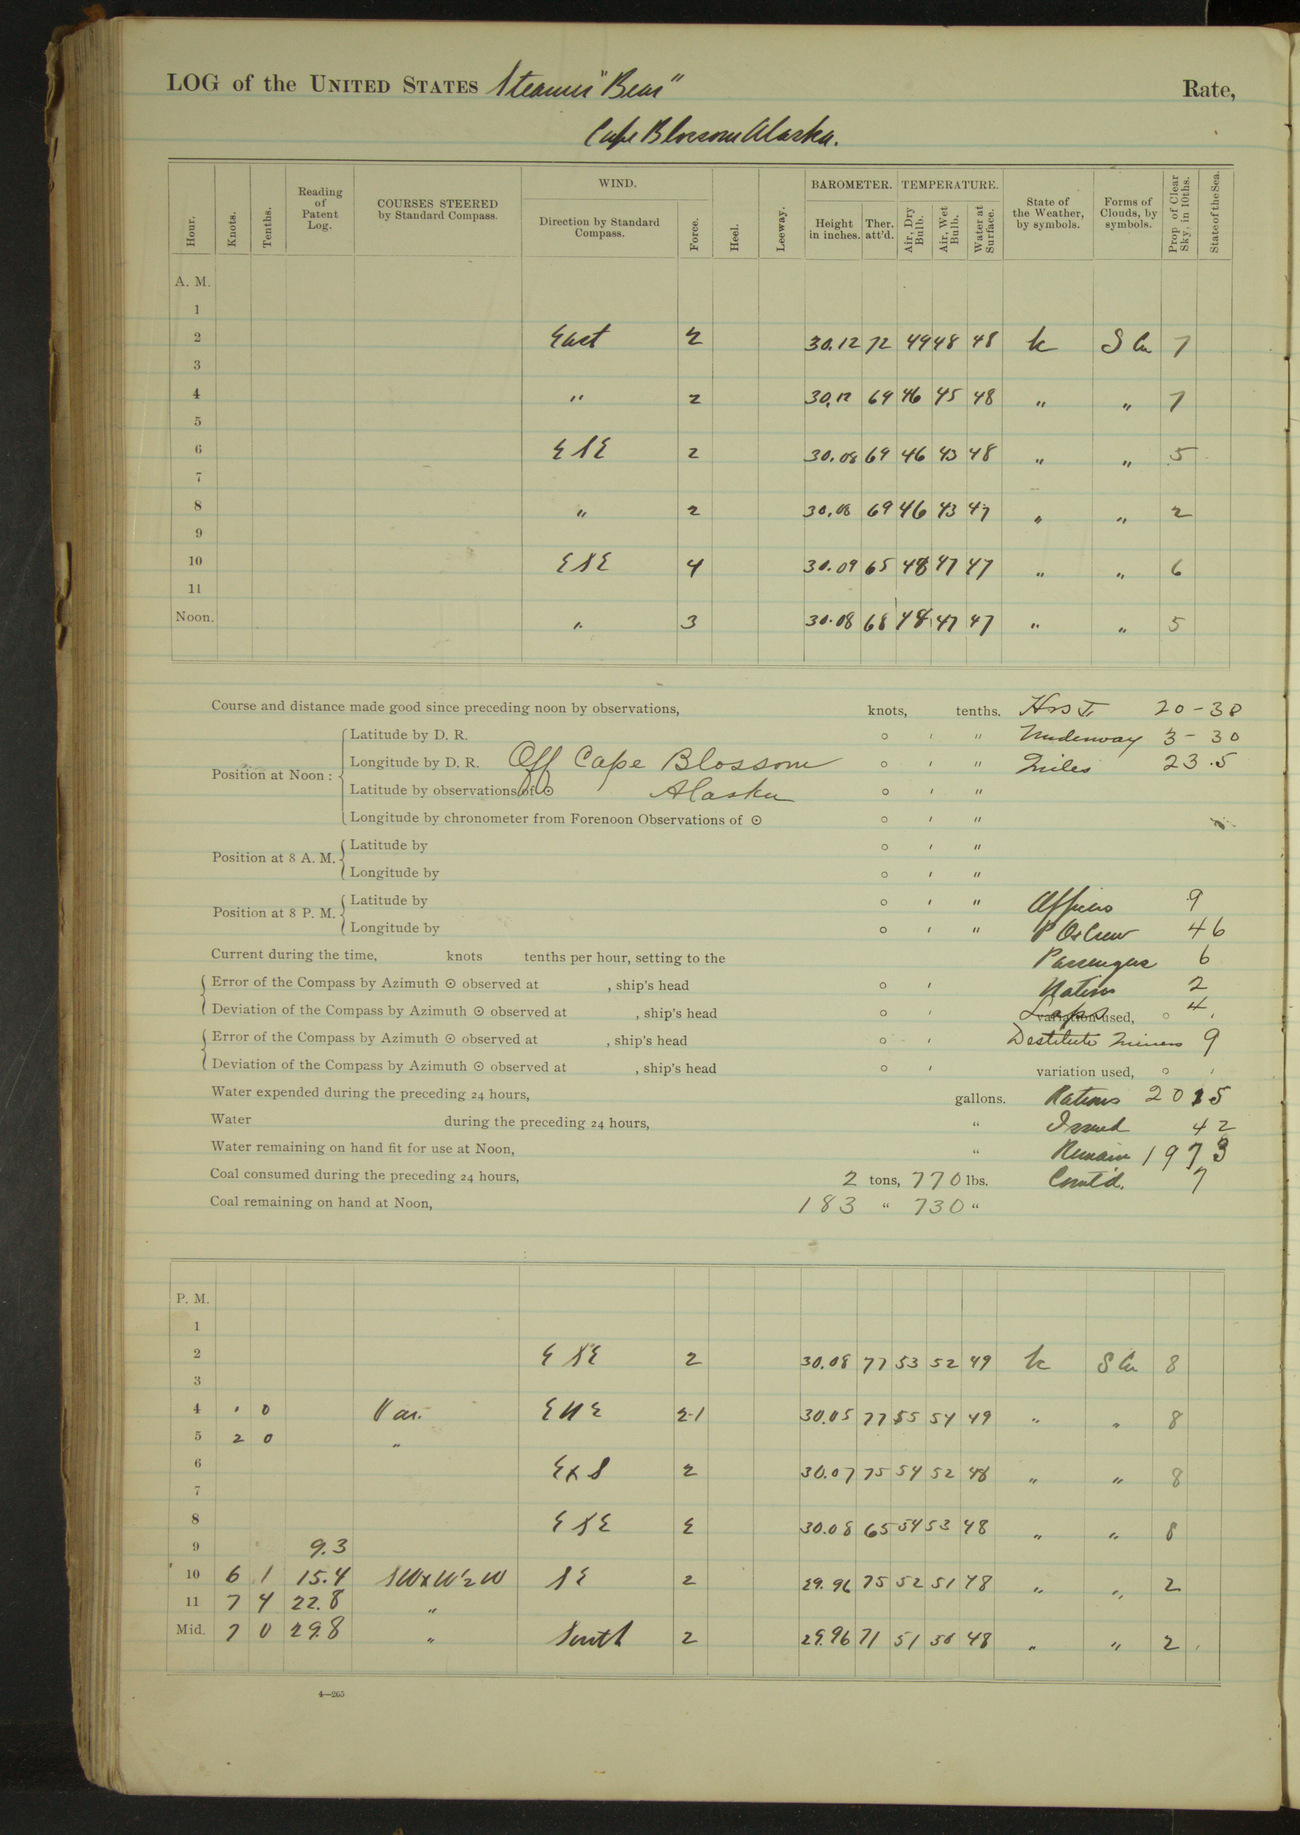 LOG of the UNITED STATES Steamer "Bear" Rate,
Cape Blossom Alaska.
Hour. Knots. Tenths. Reading of Patent Log. COURSES STEERED by Standard Compass. WIND. Direction by Standard Compass. Force. Heel. Leeway. BAROMETER. Height in inches. Ther. att'd. TEMPERATURE. Air, Dry Bulb. Air, Wet Bulb. Water at Surface. State of the Weather, by symbols. Forms of Clouds, by symbols. Prop. of Clear Sky, in 10ths. State of the Sea.
A. M.
1
2 East 2 30.12 72 49 48 48 bc S Cu 7
3
4 " 2 30.12 69 46 45 48 " " 7
5
6 ESE 2 30.08 69 46 43 48 " " 5
7
8 " 2 30.08 69 46 43 47 " " 2
9
10 ESE 4 30.09 65 48 47 47 " " 6
11
Noon. " 3 30.08 68 48 47 47 " " 5
Course and distance made good since preceding noon by observations, knots, tenths. 20-38
Position at Noon: Latitude by D. R. ° ′ ″ Underway 3-30
Longitude by D. R. Off Cape Blossom ° ′ ″ Miles 23.5
Latitude by observations of ☉ Alaska ° ′ ″
Longitude by chronometer from Forenoon Observations of ☉ ° ′ ″
Position at 8 A. M. Latitude by ° ′ ″
Longitude by ° ′ ″
Position at 8 P. M. Latitude by ° ′ ″ Officers 9
Longitude by ° ′ ″ Crew 46
Current during the time, knots tenths per hour, setting to the Passengers 6
Error of the Compass by Azimuth ☉ observed at , ship's head ° ′ Natives 2
Deviation of the Compass by Azimuth ☉ observed at , ship's head ° ′ variation used, ° ′ Laps 4
Error of the Compass by Azimuth ☉ observed at , ship's head ° ′ Destitute Miners 9
Deviation of the Compass by Azimuth ☉ observed at , ship's head ° ′ variation used, ° ′
Water expended during the preceding 24 hours, gallons. Rations 2015
Water during the preceding 24 hours, " Issued 42
Water remaining on hand fit for use at Noon, " Remain 1973
Coal consumed during the preceding 24 hours, 2 tons, 770 lbs. Com'td. 7
Coal remaining on hand at Noon, 183 " 730 "
P. M.
1
2 ESE 2 30.08 77 53 52 49 bc S Cu 8
3
4 . 0 Var. ENE 2-1 30.05 77 55 54 49 " " 8
5 2 0 "
6 ExS 2 30.07 75 54 52 48 " " 8
7
8 ESE 2 30.08 65 54 53 48 " " 8
9 9.3
10 6 1 15.4 SWxW½W SE 2 29.96 75 52 51 48 " " 2
11 7 4 22.8 "
Mid. 7 0 29.8 " South 2 29.96 71 51 50 48 " " 2
4—265